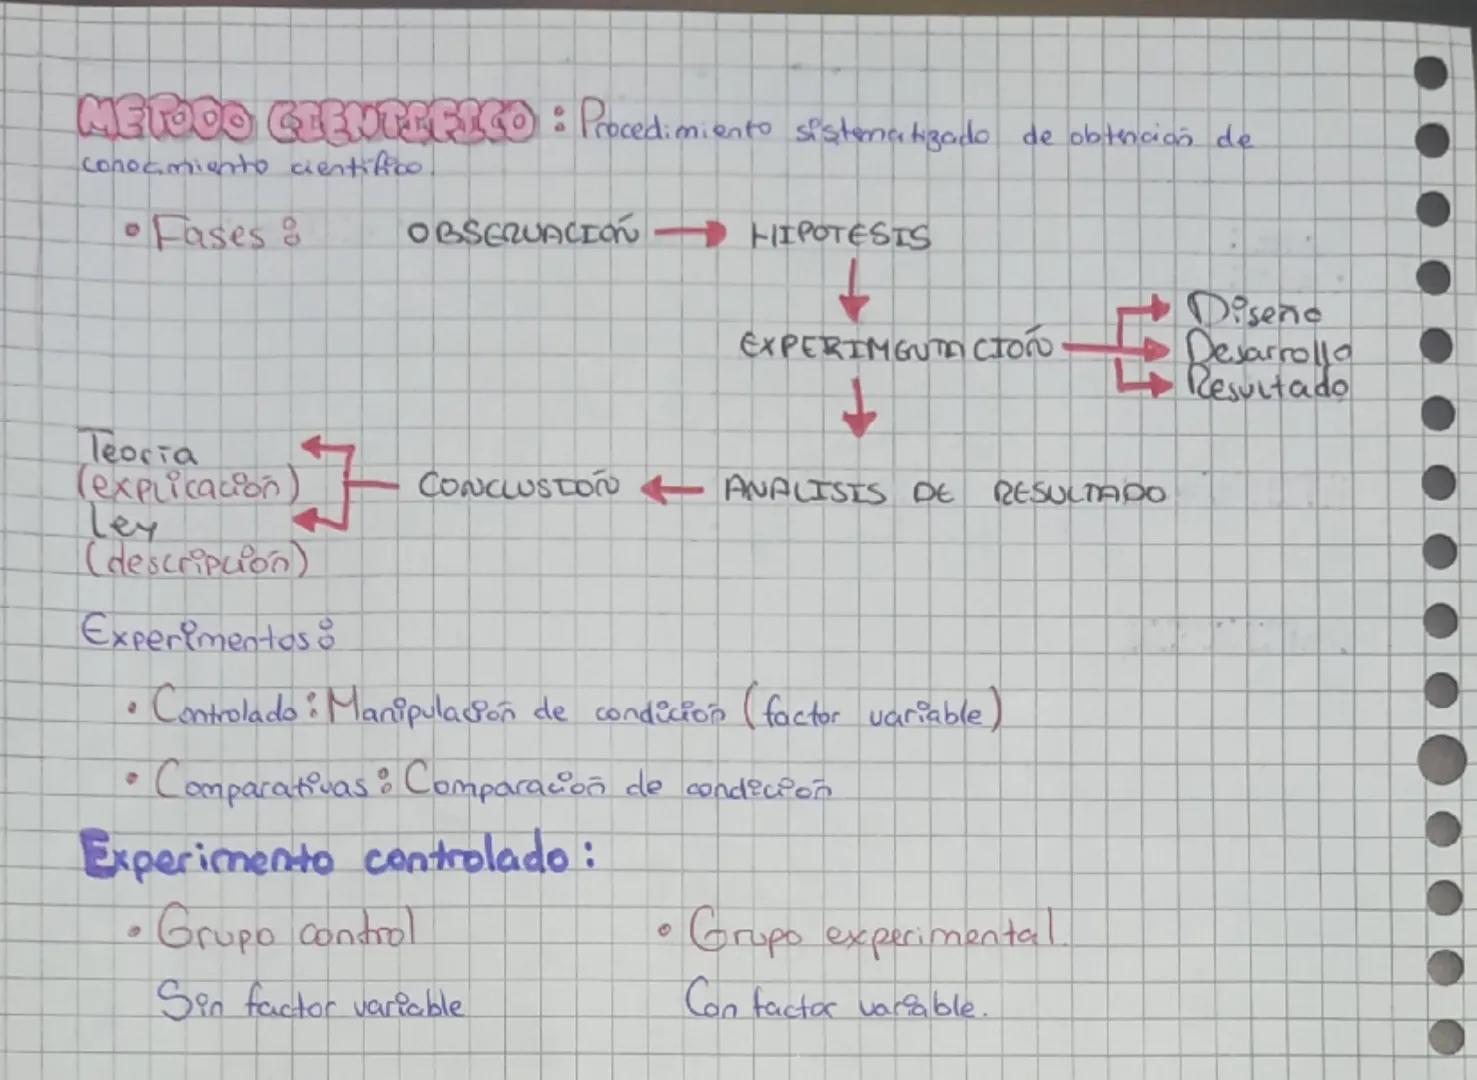 METODO CIENTIFICO : Procedimiento sistematizado de obtención de
conocimiento científico.
• Fases : OBSERVACIÓN → HIPOTESIS
EXPERIMENTACIÓN
Diseño
Desarrollo
Resultado
Teoría
(explicación)
Ley
(descripción)
CONCLUSIÓN ← ANALISIS DE RESULTADO
Experimentos:
• Controlado : Manipulación de condición (factor variable)
• Comparativas : Comparación de condición
Experimento controlado :
• Grupo control • Grupo experimental.
Sin factor variable Con factor variable.